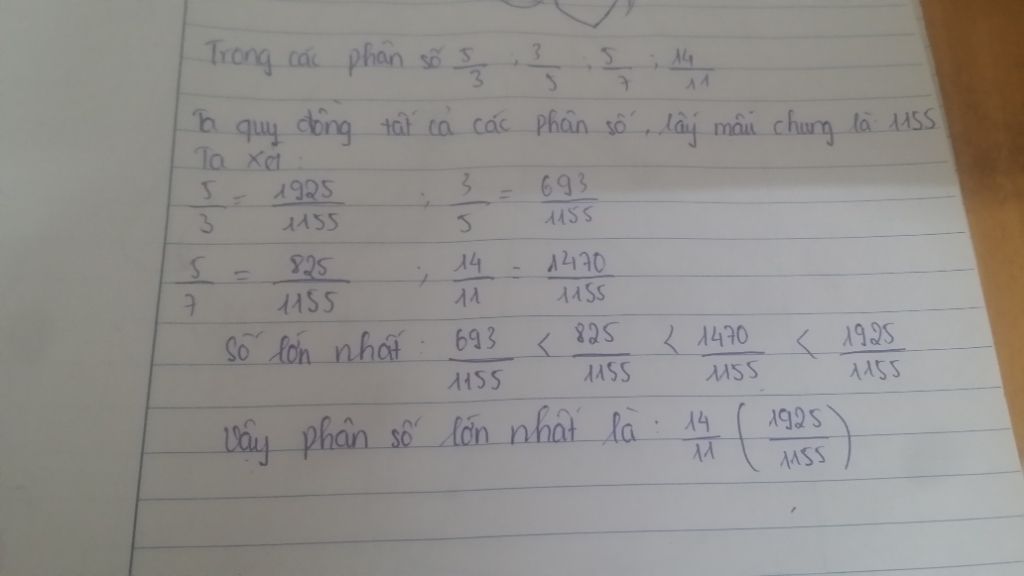 Trong các phân số 5/3 ; 3/5 ; 5/7 ; 14/11
Ta quy đồng tất cả các phân số, lấy mẫu chung là 1155
Ta xét :
5/3 = 1925/1155 ; 3/5 = 693/1155
5/7 = 825/1155 ; 14/11 = 1470/1155
Số lớn nhất : 693/1155 < 825/1155 < 1470/1155 < 1925/1155
Vậy phân số lớn nhất là : 14/11 (1925/1155)